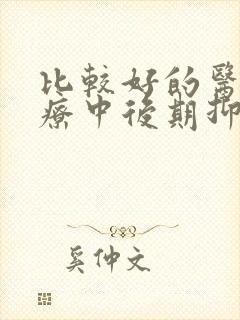 比較好的醫
療中後期抑
奚仲文